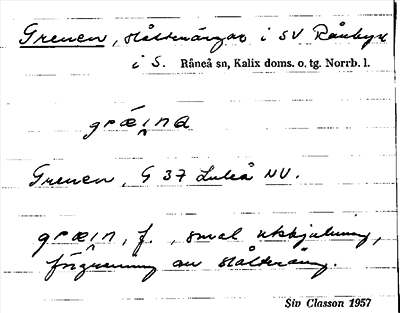 Grenen, slåtterängar i SV Rånbyn
i S. Råneå sn, Kalix doms. o. tg. Norrb. l.
græ̂ı̨na
Grenen, G 37 Luleå NV.
græı̨n, f., smal utskjutning,
förgrening av slåtteräng.
Siv Classon 1957